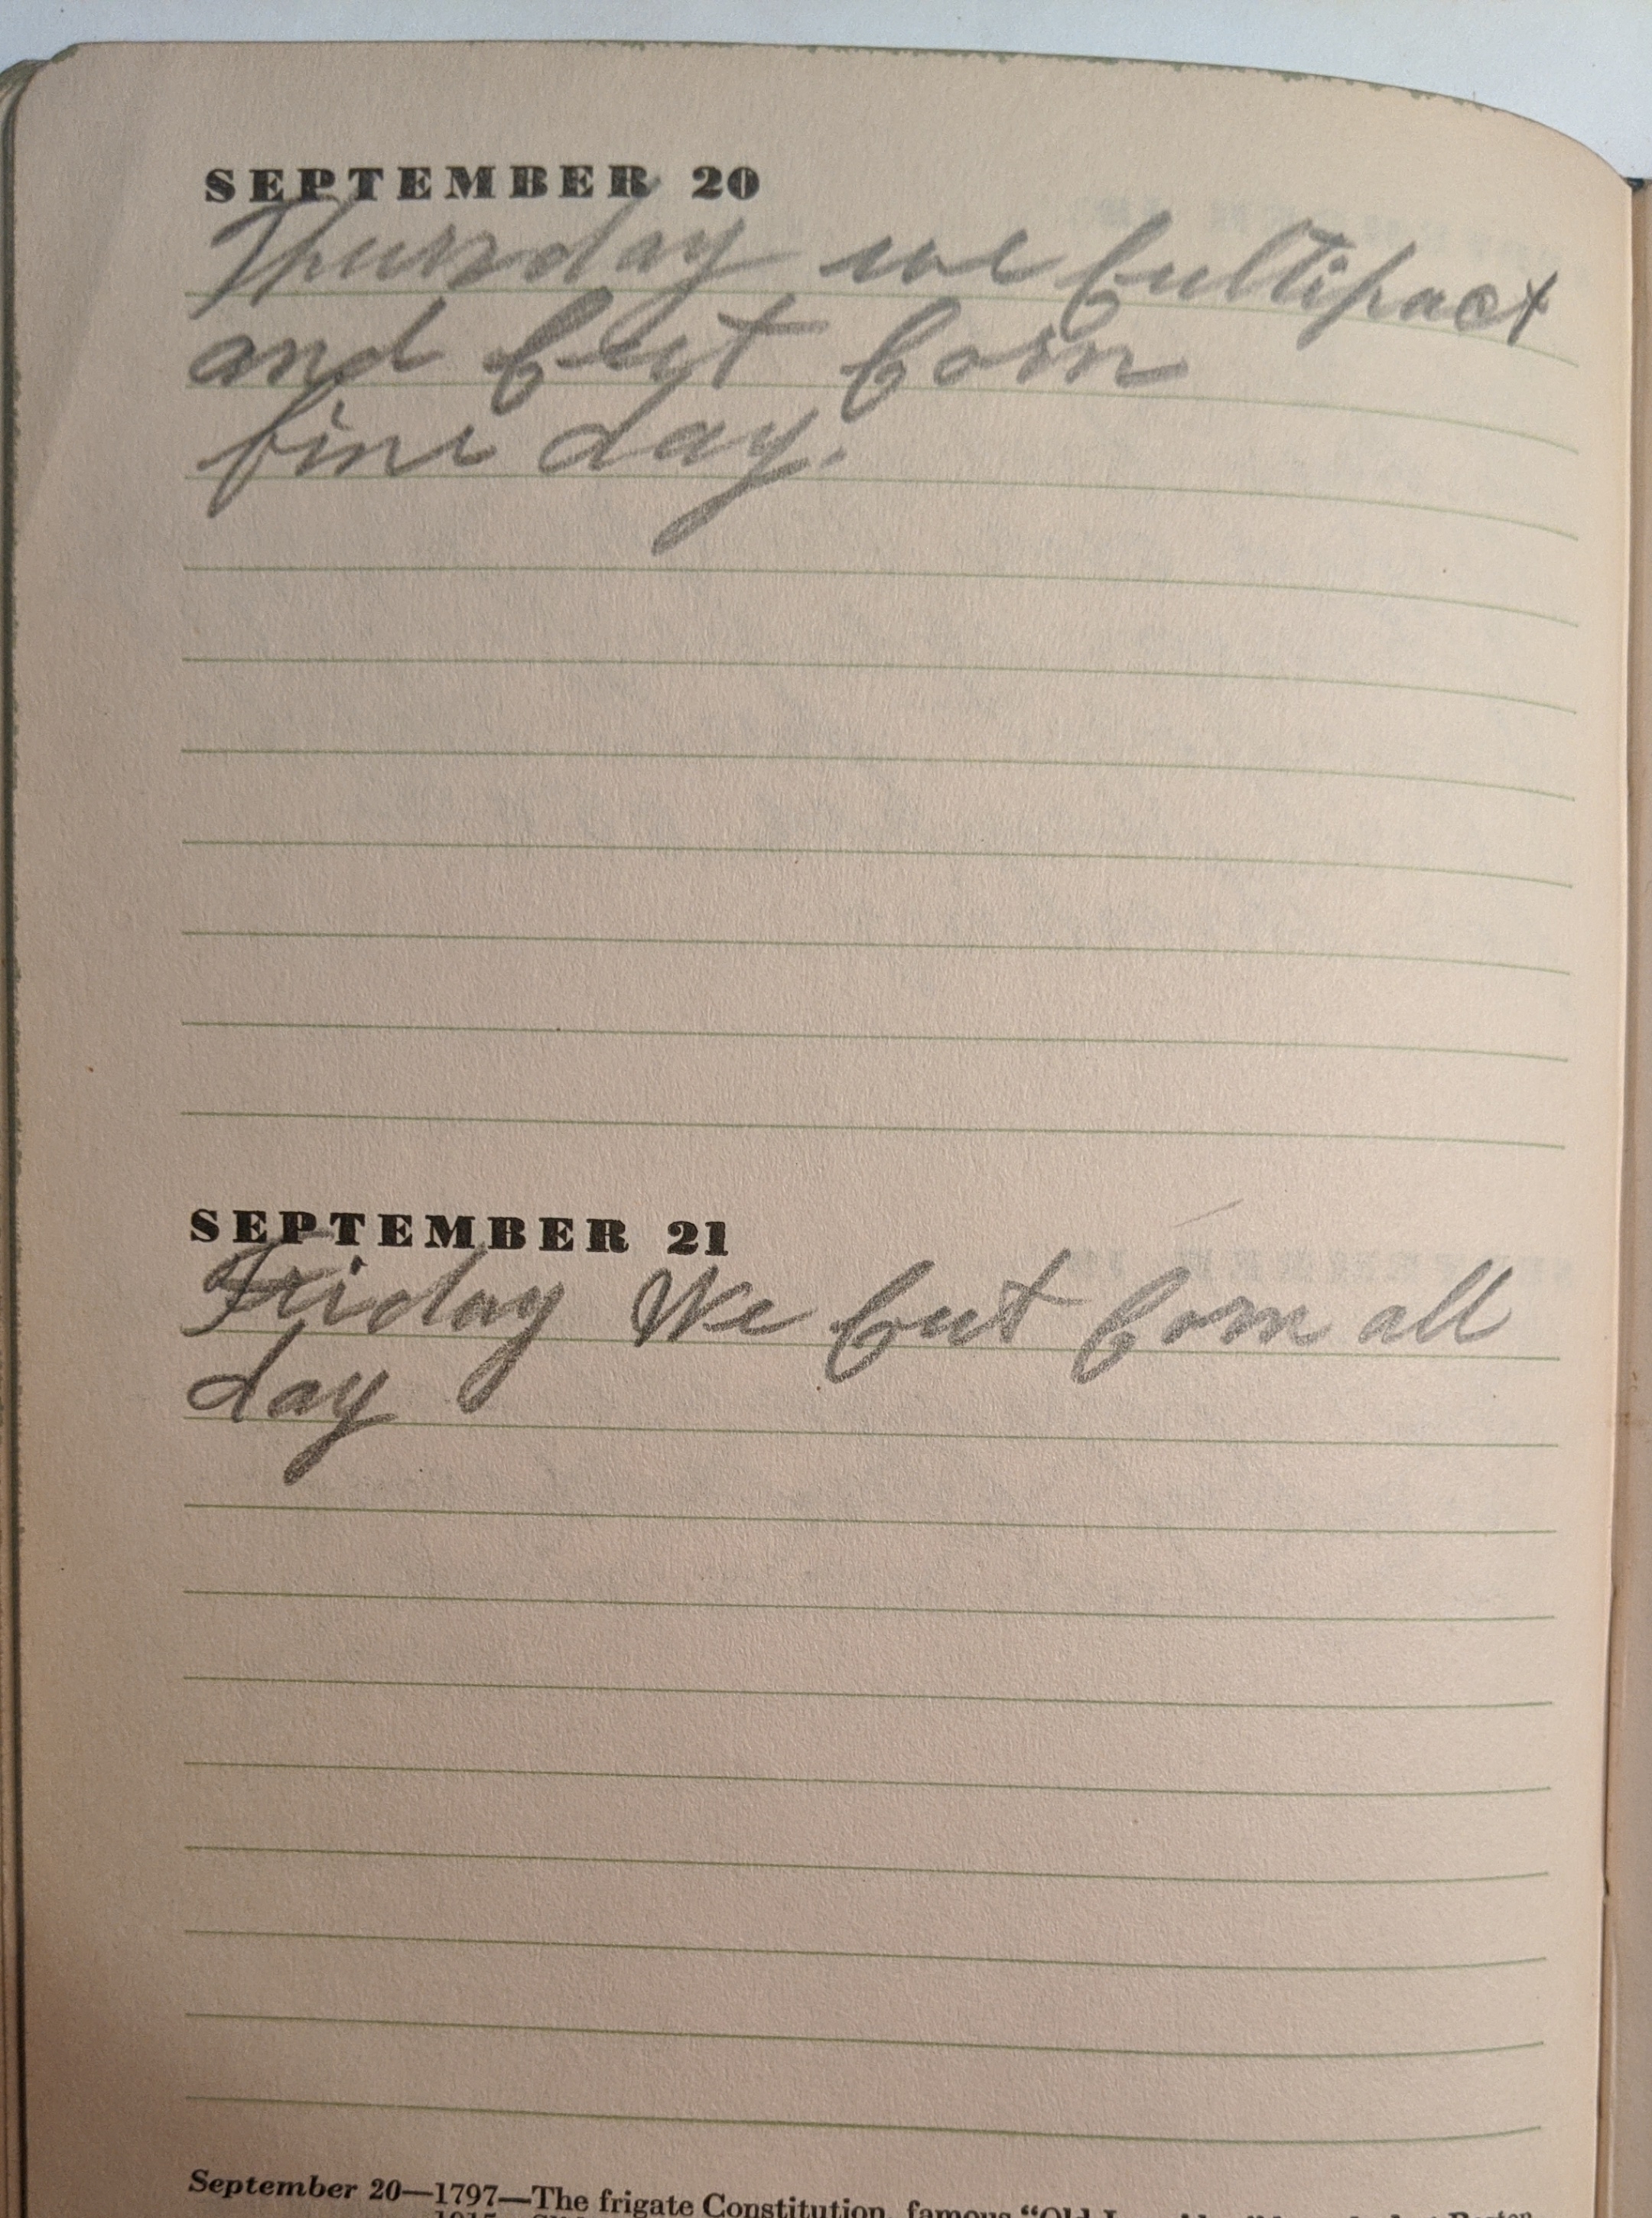 SEPTEMBER 20
Thursday we cultipact
and cut corn
fine day.
SEPTEMBER 21
Friday We cut corn all
day
September 20—1797—The frigate Constitution, famous "Old